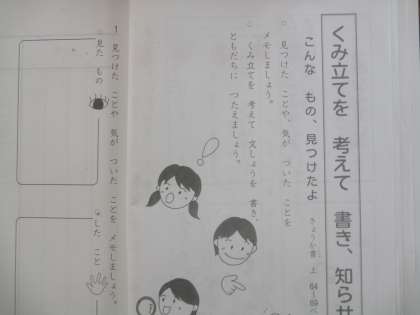 くみ立てを 考えて 書き、知らせ
こんな もの、見つけたよ
きょうか書 上 64～69ペ
○ 見つけた ことや、気が ついた ことを
メモしましょう。
○ くみ立てを 考えて 文しょうを 書き、
ともだちに つたえましょう。
1 見つけた ことや 気が ついた ことを メモしましょう。
見た もの
した こと